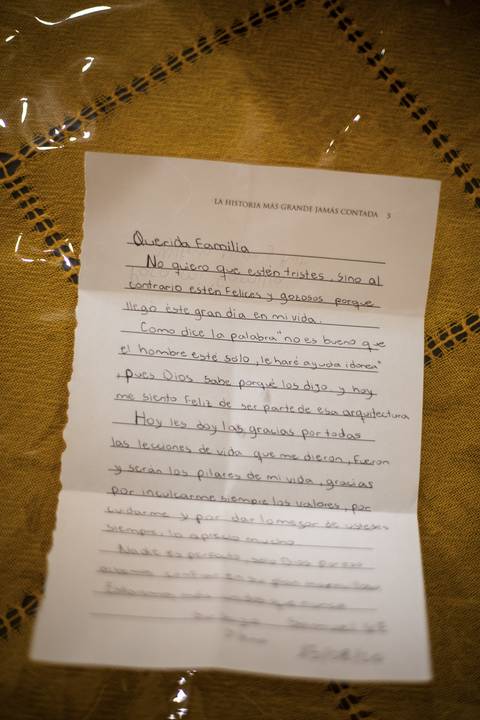 LA HISTORIA MÁS GRANDE JAMÁS CONTADA 3
Querida Familia
No quiero que estén tristes, sino al
contrario esten Felices y gozosos porque
llego éste gran día en mi vida.
Como dice la palabra "no es bueno que
el hombre esté solo, le haré ayuda idonea"
, pues Dios sabe porqué los dijo y hoy
me siento Feliz de ser parte de esa arquitectura
Hoy les doy las gracias por todas
las lecciones de vida que me dieron, Fueron
y serán los pilares de mi vida, gracias
por inculcarme siempre los valores, por
cuidarme y por dar lo mejor de ustedes
siempre, lo aprecio mucho
Nadie es perfecto, solo Dios